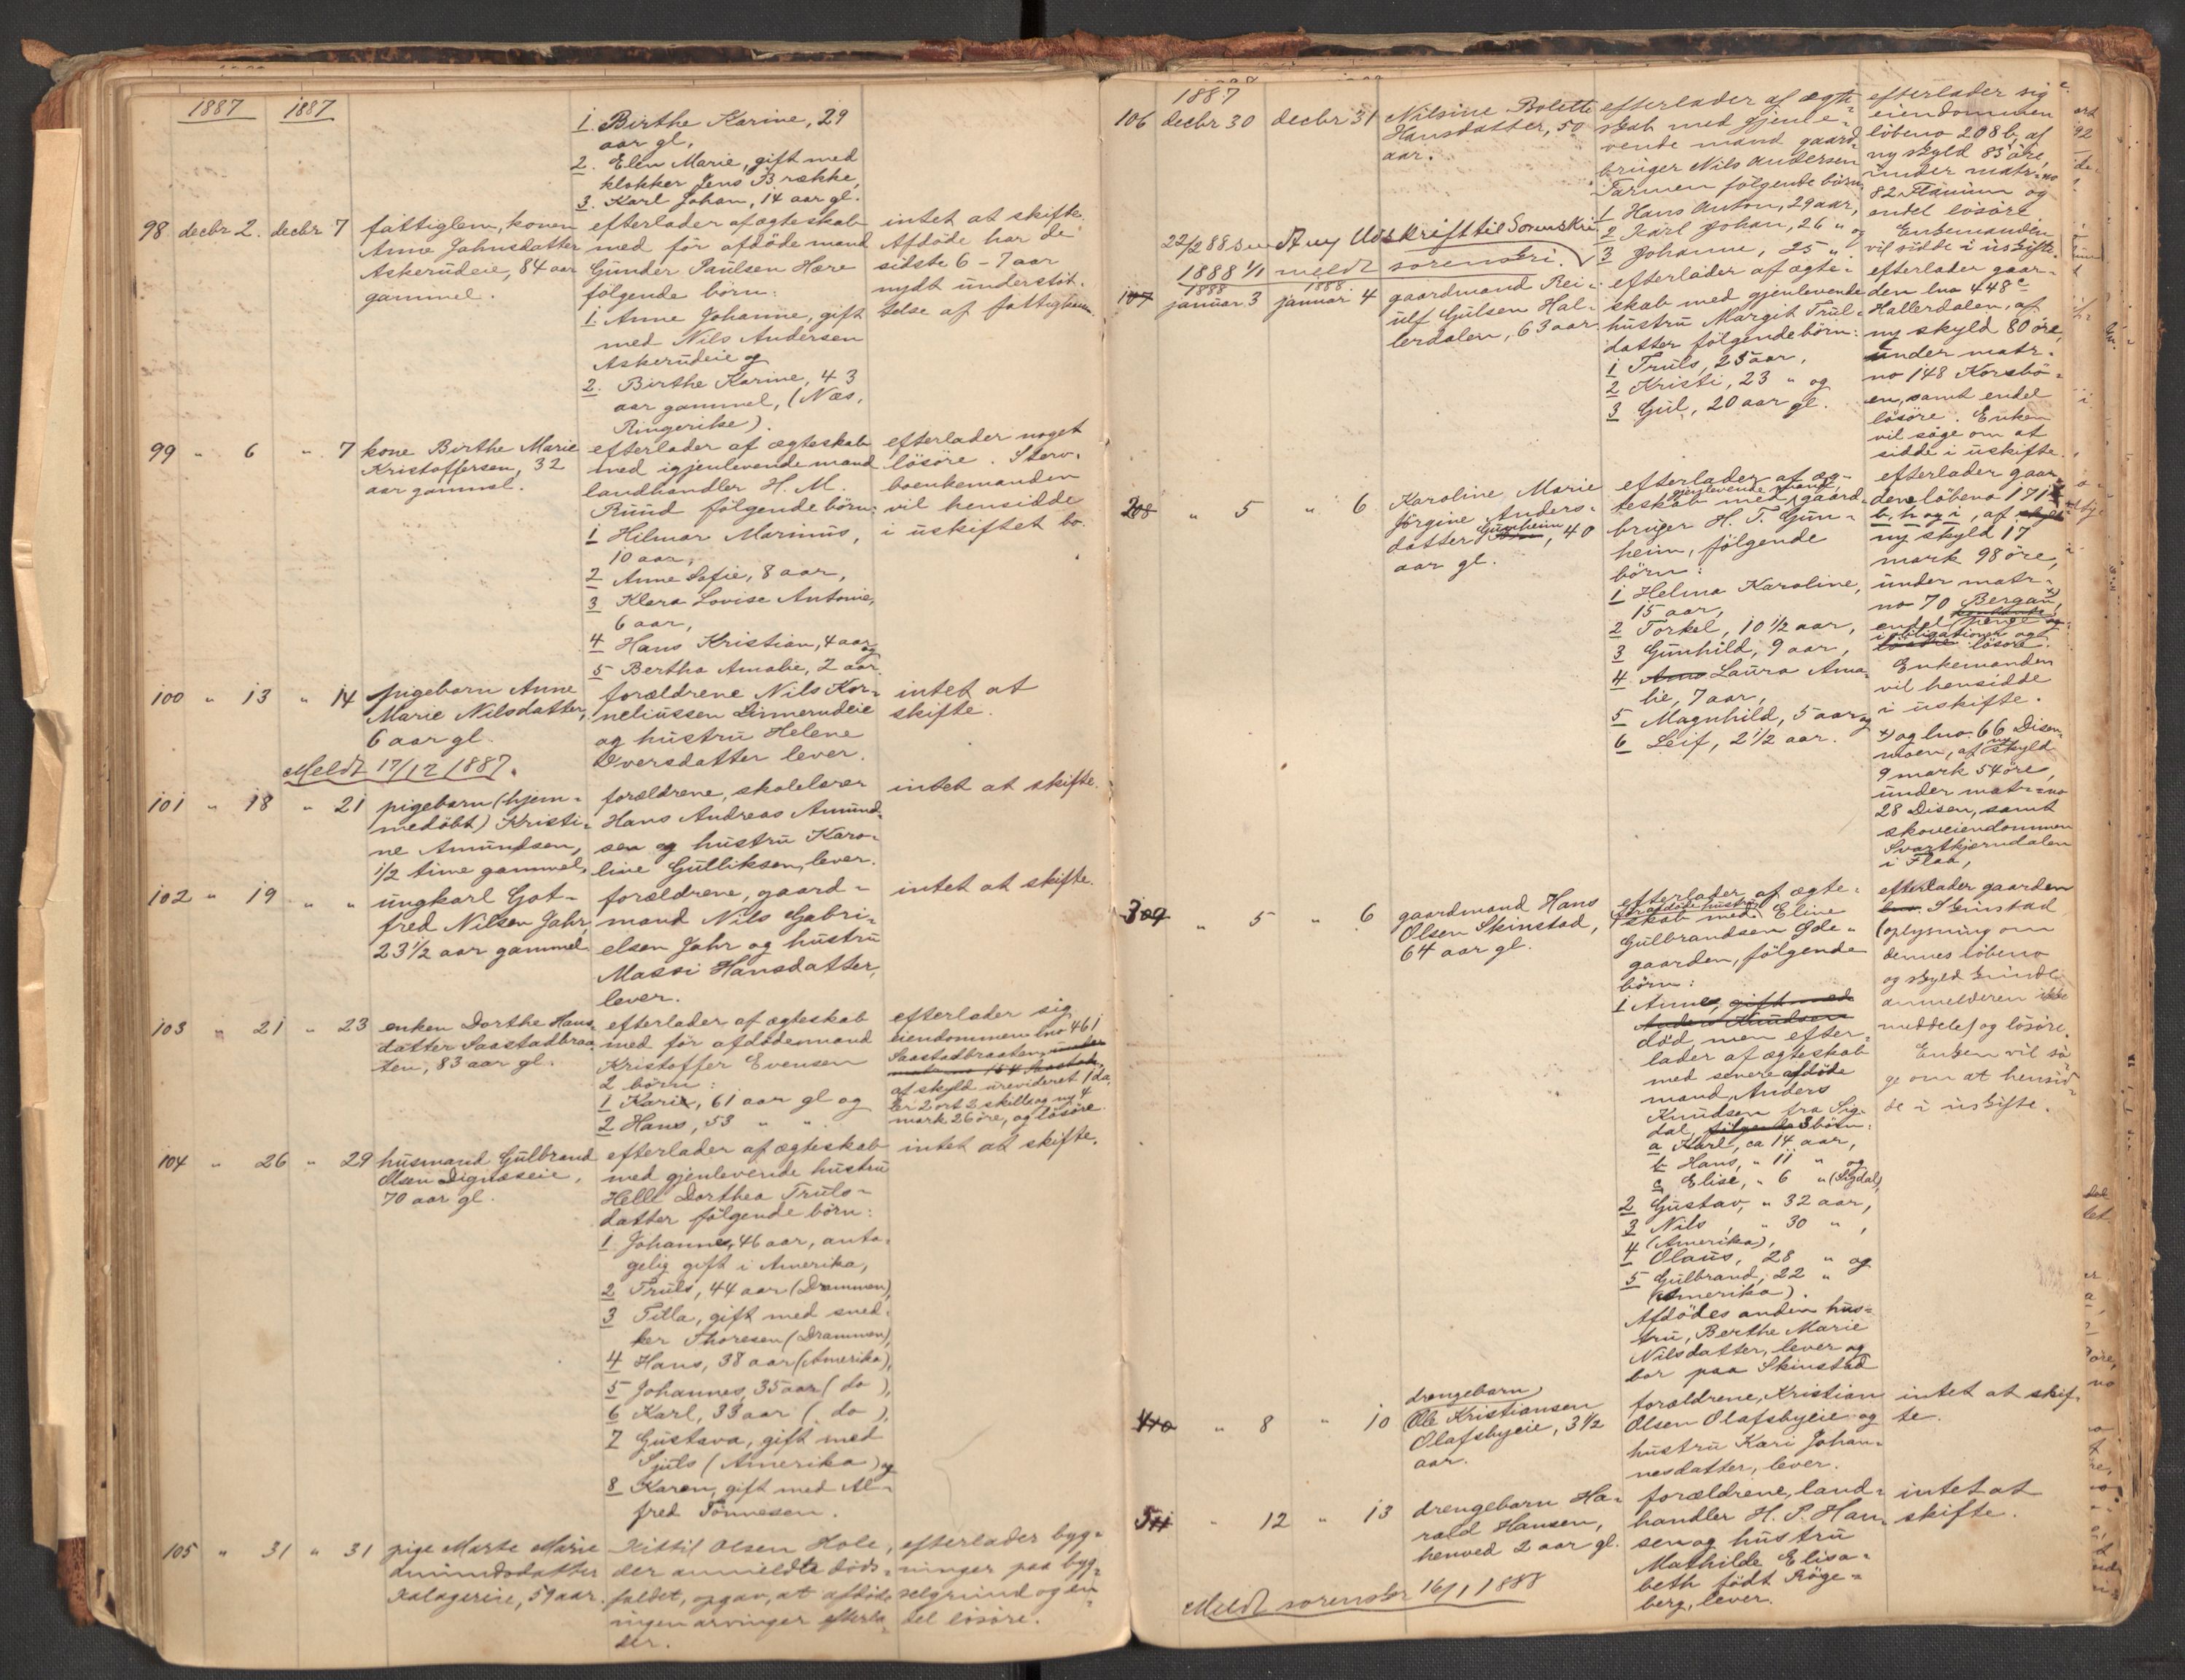 1887 1887
1. Birthe Karine, 29
aar gl,
2. Elen Marie, gift med
klokker Jens Brække,
3. Karl Johan, 14 aar gl.
98 decbr 2. decbr 7 fattiglem, konen
Anne Jahnsdatter
Askerudeie, 84 aar
gammel.
efterlader af ægteskab
med før afdöde mand
Gunder Paulsen Hære
følgende børn:
1 Anne Johanne, gift
med Nils Andersen
Askerudeie og
2. Birthe Karine, 43
aar gammel, (Næs,
Ringerike).
intet at skifte.
Afdöde har de
sidste 6 - 7 aar
nydt understöt-
telse af fattigkassen.
99 " 6 " 7 kone Birthe Marie
Kristoffersen, 32
aar gammel.
efterlader af ægteskab
med igjenlevende mand
landhandler H. M.
Ruud følgende børn:
1 Hilmar Marinus,
10 aar,
2 Anne Sofie, 8 aar,
3 Klara Lovise Antonie,
6 aar,
4 Hans Kristian, 4 aar og
5 Bertha Amalie, 2 aar.
efterlader noget
lösöre. Sterv-
boenkemanden
vil hensidde
i uskiftet bo.
100 " 13 " 14 pigebarn Anne
Marie Nilsdatter,
6 aar gl.
forældrene Nils Kor-
neliussen Linnerudeie
og hustru Helene
Iversdatter lever.
intet at
skifte.
Meldt 17/12 1887.
101 " 18 " 21 pigebarn (hjem-
medöbt) Kristi-
ne Amundsen,
1/2 time gammel,
forældrene, skolelærer
Hans Andreas Amund-
sen og hustru Karo-
line Gulliksen, lever.
intet at skifte.
102 " 19 " " ungkarl Got-
fred Nilsen Jahr,
23 1/2 aar gammel
forældrene, gaard-
mand Nils Gabri-
elsen Jahr og hustru
Massi Hansdatter,
lever.
intet at skifte.
103 " 21 " 23 enken Dorthe Hans-
datter Saastadbraa-
ten, 83 aar gl.
efterlader af ægteskab
med før afdödemand
Kristoffer Evensen
2 børn:
1 Kari, 61 aar gl og
2 Hans, 53 " "
efterlader sig
eiendommen lno 461
Saastadbraaten, under
matr no 154 Saastad,
af skyld urevideret 1 da-
ler 2 ort 2 skill og ny 4
mark 26 öre, og lösöre.
104 " 26 " 29 husmand Gulbrand
Olsen Lignæseie,
70 aar gl.
efterlader af ægteskab
med gjenlevende hustru
Helle Dorthea Truls-
datter følgende børn:
1 Johannes, 46 aar, anta-
gelig gift i Amerika,
2 Truls, 44 aar (Drammen),
3 Titla, gift med sned-
ker Thoresen (Drammen),
4 Hans, 38 aar (Amerika),
5 Johannes, 35 aar ( do ),
6 Karl, 33 aar ( do ),
7 Gustava, gift med
Sjuls (Amerika) og
8 Karen, gift med Al-
fred Tönnesen.
intet at skifte.
105 " 31 " 31 pige Marte Marie
Amundsdatter
Kalagereie, 59 aar.
Kittil Olsen Hole,
der anmeldte döds-
faldet, opgav, at afdöde
ingen arvinger efterla-
der.
efterlader byg-
ninger paa byg-
selgrund og en
del lösöre.
1887
106 decbr 30 decbr 31 Nilsine Bolette
Hansdatter, 50
aar.
efterlader af ægte-
skab med gjenle-
vende mand gaard-
bruger Nils Andersen
Tarmen følgende børn
1 Hans Anton, 29 aar,
2 Karl Johan, 26 " og
3 Johanne, 25 ".
efterlader sig
eiendommen
löbeno 208 b, af
ny skyld 83 öre,
under matr-no
82 Flaunum og
endel lösöre.
Enkemanden
vil sidde i uskifte.
22/2 88 Ny Udskrift til Sorenskri.
1888 1/1 meldt sorenskri.
1888 1888
107 januar 3 januar 4 gaardmand Rei-
ulf Gulsen Hal-
lerdalen, 63 aar
efterlader af ægte-
skab med gjenlevende
hustru Margit Truls-
datter følgende børn:
1 Truls, 25 aar,
2 Kristi, 23 " og
3 Gul, 20 aar gl.
efterlader gaar-
den lno 448 c
Hallerdalen, af
ny skyld 80 öre,
under matr-
no 148 Korsbö-
en, samt endel
lösöre. Enken
vil söge om at
sidde i uskifte.
208 " 5 " 6 Karoline Marie
Jörgine Anders-
datter Gunheim, 40
aar gl.
efterlader af æg-
teskab med gjenlevende mand, gaard-
bruger H. T. Gun-
heim, følgende
børn:
1 Helma Karoline,
15 aar,
2 Torkel, 10 1/2 aar,
3 Gunhild, 9 aar,
4 Laura Ama-
lie, 7 aar,
5 Magnhild, 5 aar og
6 Leif, 2 1/2 aar.
efterlader gaar-
den löbeno 171
b, h og i, af
ny skyld 17
mark 98 öre,
under matr-
no 70 Bergan,
endel penge
i obligationer og
lösöre.
Enkemanden
vil hensidde
i uskifte.
x) og lno. 66 Disen-
moen, af ny skyld
9 mark 54 öre,
under matr-no
28 Disen, samt
skoveiendommen
Svarttjerndalen
i Flaa,
309 " 5 " 6 gaardmand Hans
Olsen Skinstad,
64 aar gl.
efterlader af ægte-
skab med før afdöde hustru Eline
Gulbrandsen Öde-
gaarden, følgende
børn:
1 Anne, gift med
Anders Knudsen
död, men efter-
lader af ægteskab
med senere afdöde
mand, Anders
Knudsen fra Sig-
dal, følgende 3 børn:
a Karl, ca 14 aar,
b Hans, " 11 " og
c Elise, " 6 " (Sigdal),
2 Gustav, " 32 aar,
3 Nils, " 30 ",
(Amerika),
4 Olaus, 28 " og
5 Gulbrand, 22 "
(Amerika).
Afdödes anden hus-
tru, Berthe Marie
Nilsdatter, lever og
bor paa Skinstad
efterlader gaarden
lno. Skinstad
(oplysning om
dennes löbeno
og skyld kunde
anmelderen ikke
meddele) og lösöre.
Enken vil sö-
ge om at hensid-
de i uskifte.
410 " 8 " 10 drengebarn
Ole Kristiansen
Olafsbyeie, 3 1/2
aar.
forældrene, Kristian
Olsen Olafsbyeie og
hustru Kari Johan-
nesdatter, lever.
intet at skif-
te.
511 " 12 " 13 drengebarn Ha-
rald Hansen,
henved 2 aar gl.
forældrene, land-
handler H. P. Han-
sen og hustru
Mathilde Elisa-
beth født Röge-
berg, lever.
intet at
skifte.
Meldt sorenskr 16/1 1888